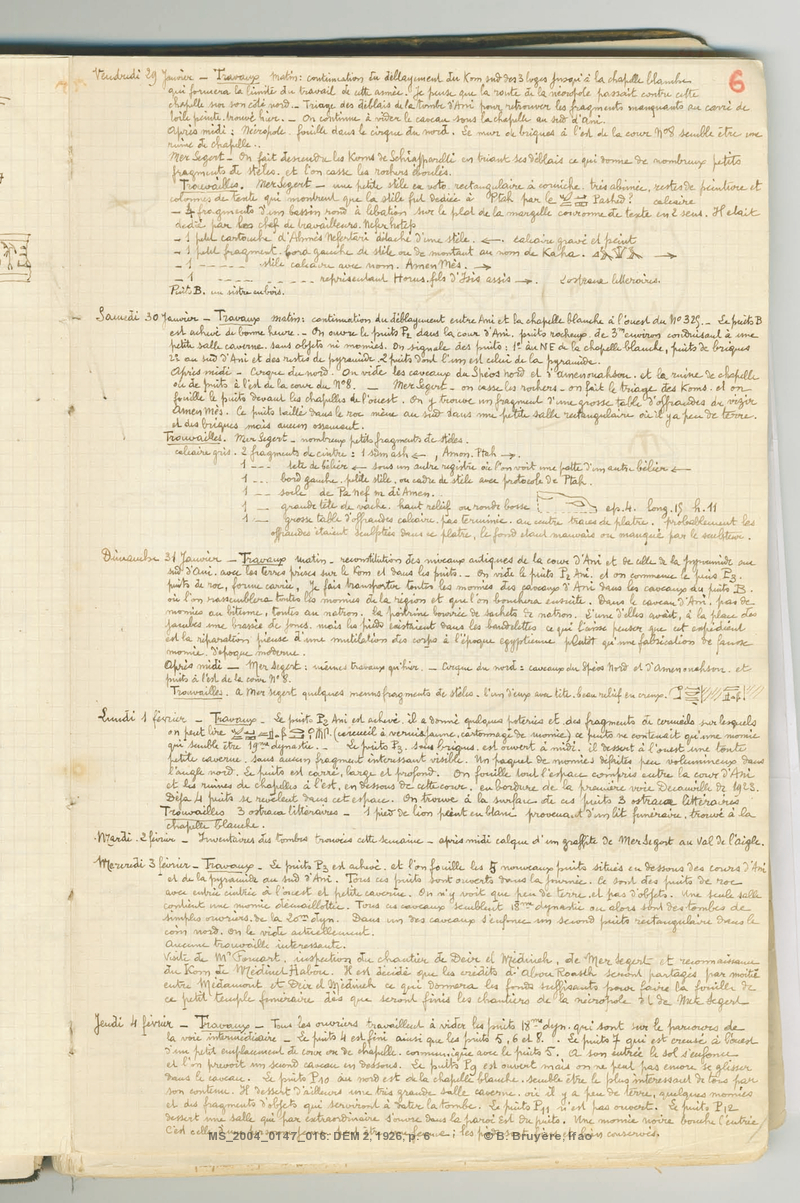 6
Vendredi 29 Janvier – Travaux matin : continuation du déblayement du Kom sud des 3 loges jusqu'à la chapelle blanche
qui formera la limite du travail de cette année. Je pense que la route de la nécropole passait contre cette
chapelle sur son côté nord. – Triage des déblais de la tombe d'Ani pour retrouver les fragments manquants au carré de
toile peinte trouvé hier. – On continue à vider le caveau sous la chapelle au sud d'Ani.
Après midi : Nécropole. fouille dans le cirque du nord. Le mur de briques à l'est de la cour N°8 semble être une
ruine de chapelle.
Mer Segert – On fait descendre les Koms de Schiapparelli en triant ses déblais ce qui donne de nombreux petits
fragments de stèles. et l'on casse les rochers éboulés.
Trouvailles. Mer Segert – une petite stèle ex voto rectangulaire à corniche. très abimée, restes de peinture et
colonnes de texte qui montrent que la stèle fut dédiée à Ptah par le Pashed. calcaire
– 4 fragments d'un bassin rond à libation sur le plat de la margelle couronne de texte en 2 sens. Il était
dédié par les chef de travailleurs. Neferhotep
– 1 petit cartouche d'Ahmès Nefertari détaché d'une stèle. ←. calcaire gravé et peint
– 1 petit fragment. bord gauche de stèle ou de montant au nom de Kaha. →
– 1 – – – – stèle calcaire avec nom. AmenMès. →
– 1 – – – – représentant Horus. fils d'Isis assis →. 2 ostraca littéraires.
Puits B. un sistre en bois.
Samedi 30 Janvier – Travaux matin : continuation du déblayement entre Ani et la chapelle blanche à l'ouest du N° 325. – Le puits B
est achevé de bonne heure. – On ouvre le puits P2 dans la cour d'Ani. puits rocheux de 3m environ conduisant à une
petite salle caverne. sans objets ni momies. On signale des puits : 1° au NE de la chapelle blanche, puits de briques
2° au sud d'Ani et des restes de pyramide 2 puits dont l'un est celui de la pyramide.
Après midi – Cirque du nord. On vide les caveaux du Spéos Nord et d'Amenonahson. et la ruine de chapelle
ou de puits à l'est de la cour du N°8. – Mer Segert – on casse les rochers – on fait le triage des Koms. et on
fouille le puits devant les chapelles de l'ouest. On y trouve un fragment d'une grosse table d'offrandes du vizir
AmenMès. Ce puits taillé dans le roc mène au sud dans une petite salle rectangulaire où il y a peu de terre.
et des briques mais aucun ossement.
Trouvailles. Mer Segert – nombreux petits fragments de stèles.
calcaire gris. 2 fragments de cintre : 1 ←, Amon. Ptah →.
1 – – – tête de bélier ← sous un autre registre où l'on voit une patte d'un autre bélier ←
1 – – – bord gauche. petite stèle, ou cadre de stèle avec protocole de Ptah.
1 – – socle de Pa nef m di Amen.
1 – grande tête de vache. haut relief ou ronde bosse ep. 4. long. 15 h. 11
1 – grosse table d'offrandes calcaire. pas terminée. au centre traces de plâtre. probablement les
offrandes étaient sculptées dans ce plâtre, le fond étant mauvais ou manqué par le sculpteur.
Dimanche 31 Janvier – Travaux matin – reconstitution des niveaux antiques de la cour d'Ani et de celle de la pyramide au
sud d'Ani. avec les terres prises sur le Kom et dans les puits. – On vide le puits P2 Ani. et on commence le puits P3.
puits de roc, forme carrée, Je fais transporter toutes les momies des caveaux d'Ani dans les caveaux du puits B.
où l'on rassemblera toutes les momies de la région et que l'on bouchera ensuite. Dans le caveau d'Ani, pas de
momies au bitume, toutes au natron. la poitrine bourrée de sachets de natron. L'une d'elles avait, à la place des
jambes une brassée de joncs, mais les pieds existaient dans les bandelettes ce qui laisse penser que cet expédient
est la réparation pieuse d'une mutilation des corps à l'époque egyptienne plutôt qu'une fabrication de fausse
momie d'époque moderne.
Après midi – Mer Segert : mêmes travaux qu'hier. – Cirque du nord : caveaux du Spéos Nord et d'Amenonahson. et
puits à l'est de la cour N° 8.
Trouvailles. à Mer Segert quelques menus fragments de stèles. l'un d'eux avec tête. beau relief en creux.
Lundi 1 février – Travaux – Le puits P2 Ani est achevé. il a donné quelques poteries et des fragments de cercueils sur lesquels
on peut lire (cercueil à vernis jaune, cartonnage de momie) ce puits ne contenait qu'une momie
qui semble être 19me dynastie. – Le puits P3. sans briques. est ouvert à midi. il dessert à l'ouest une toute
petite caverne. sans aucun fragment intéressant visible. Un paquet de momies défaites peu volumineux dans
l'angle nord. Le puits est carré, large et profond. On fouille tout l'espace compris entre la cour d'Ani
et les ruines de chapelles à l'est, en dessous de cette cour. en bordure de la première voie Decauville de 1923.
Déjà 4 puits se révèlent dans cet espace. On trouve à la surface de ces puits 3 ostraca littéraires
Trouvailles 3 ostraca littéraires – 1 pied de lion peint en blanc provenant d'un lit funéraire. trouvé à la
chapelle blanche.
Mardi. 2 février – Inventaires des tombes trouvées cette semaine – après midi calque d'un graffite de Mer Segert au Val de l'Aigle.
Mercredi 3 février – Travaux – Le puits P3 est achevé. et l'on fouille les 5 nouveaux puits situés en dessous des cours d'Ani
et de la pyramide au sud d'Ani. Tous ces puits sont ouverts dans la journée. Ce sont des puits de roc
avec entrée cintrée à l'ouest et petite caverne. On n'y voit que peu de terre et pas d'objets. Une seule salle
contient une momie démaillottée. Tous ces caveaux semblent 18me dynastie ou alors sont des tombes de
simples ouvriers de la 20me dyn. Dans un des caveaux s'enfonce un second puits rectangulaire dans le
coin nord. On le vide actuellement.
Aucune trouvaille intéressante.
Visite de Mr Foucart. inspection du chantier de Deir el Médineh, de Mer Segert et reconnaissance
du Kom de Médinet Habou. Il est décidé que les crédits d'Abou Roasch seront partagés par moitié
entre Médamout et Deir el Médineh ce qui donnera les fonds suffisants pour faire la fouille de
ce petit temple funéraire dès que seront finis les chantiers de la nécropole et de Mer Segert
Jeudi 4 février – Travaux – Tous les ouvriers travaillent à vider les puits 18me dyn. qui sont sur le parcours de
la voie intermédiaire – Le puits 4 est fini ainsi que les puits 5, 6 et 8. Le puits 7 qui est creusé à l'ouest
d'un petit emplacement de cour ou de chapelle. communique avec le puits 5. A son entrée le sol s'enfonce
et l'on prévoit un second caveau en dessous. Le puits P9 est ouvert mais on ne peut pas encore se glisser
dans le caveau. Le puits P10 au nord est de la chapelle blanche. semble être le plus intéressant de tous par
son contenu. Il dessert d'ailleurs une très grande salle caverne. où il y a peu de terre, quelques momies
et des fragments d'objets qui serviront à dater la tombe. Le puits P11 n'est pas ouvert. Le puits P12
dessert une salle qui par extraordinaire s'ouvre dans la paroi Est du puits. Une momie noire bouche l'entrée
C'est celle ; les pieds sont bien conservés.
MS_2004_0147_016. DEM 2, 1926, p. 6 © B. Bruyère, Ifao